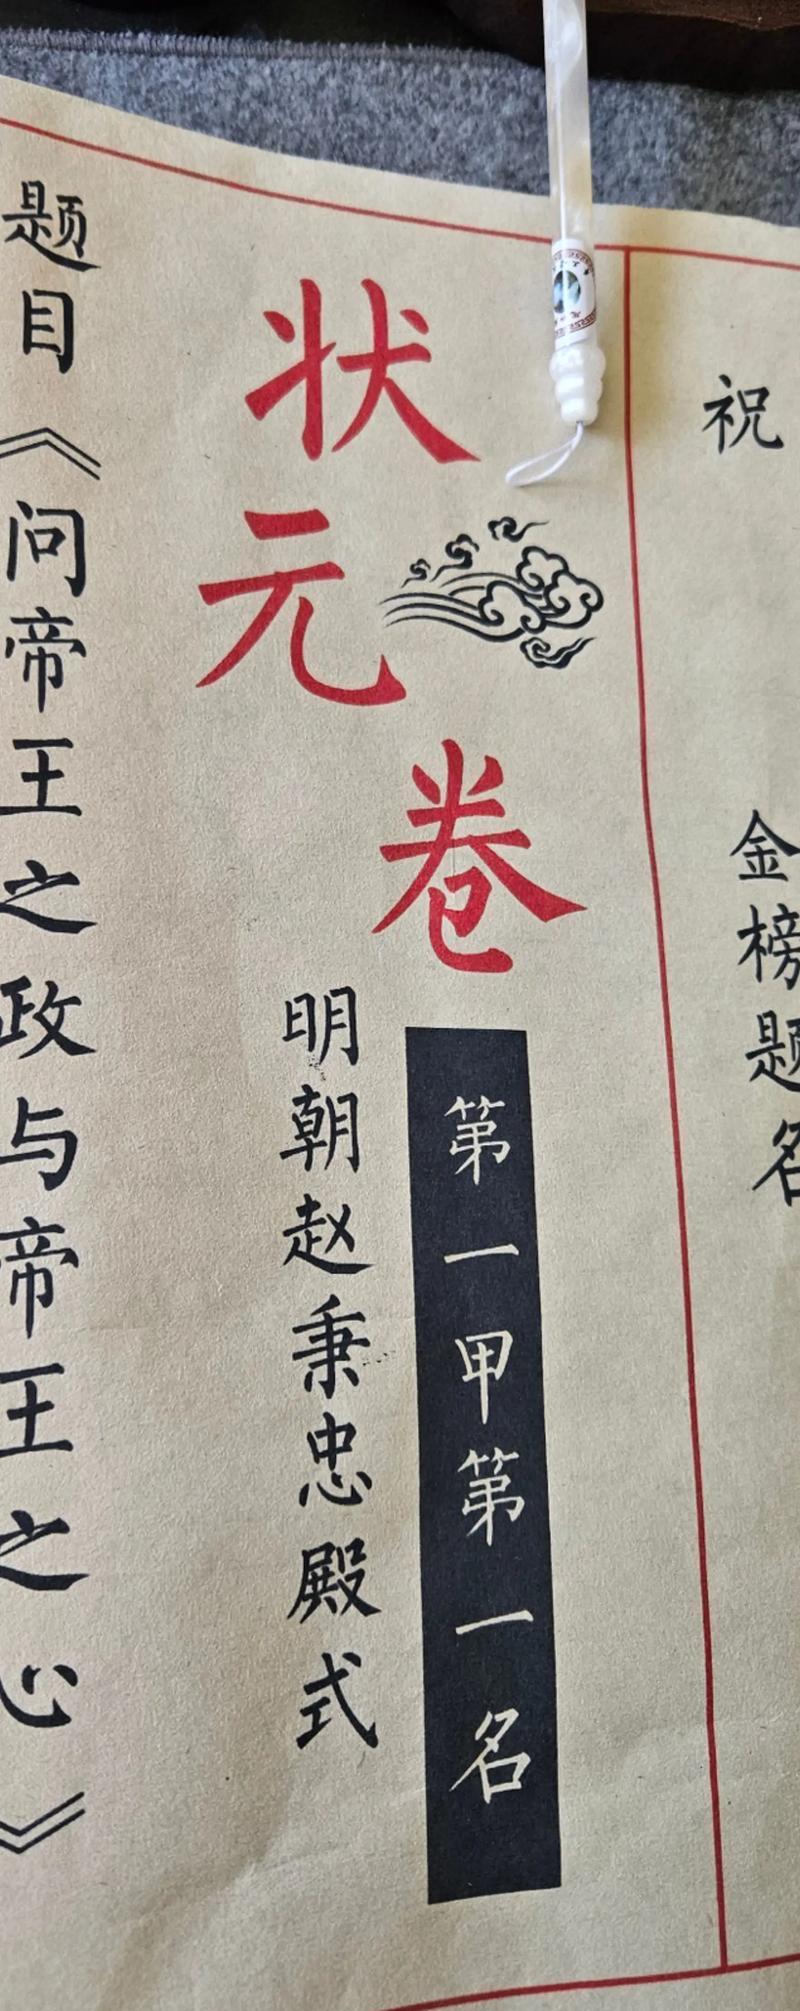 祝
金榜题名
状元卷
第一甲第一名
明朝赵秉忠殿式
题目《问帝王之政与帝王之心》